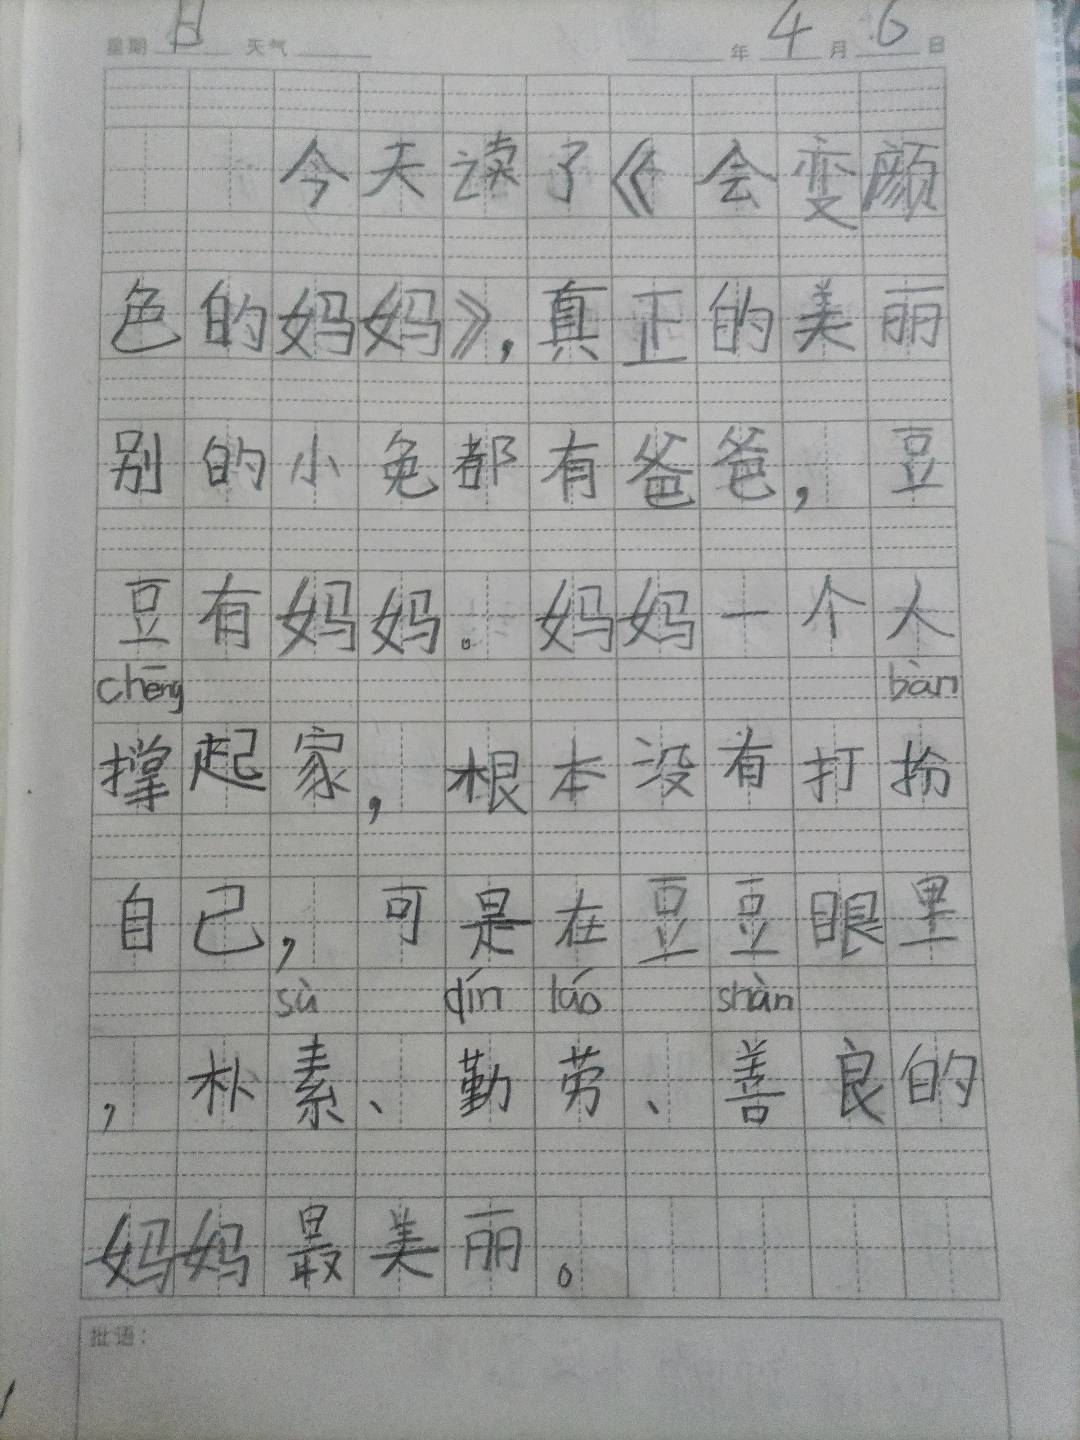 星期 日 天气 年 4 月 6 日
今天读了《会变颜
色的妈妈》,真正的美丽
别的小兔都有爸爸,豆
豆有妈妈。妈妈一个人
chēng bàn
撑起家,根本没有打扮
自己,可是在豆豆眼里
sù qín láo shàn
,朴素、勤劳、善良的
妈妈最美丽。
批语: